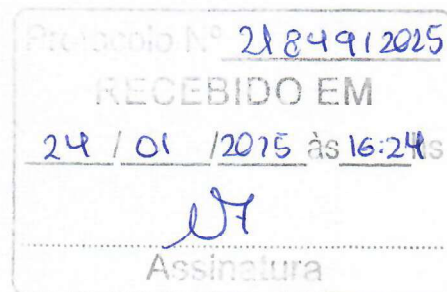 Protocolo Nº 21849/2025
RECEBIDO EM
24 / 01 /2025 às 16:24 hs
Assinatura